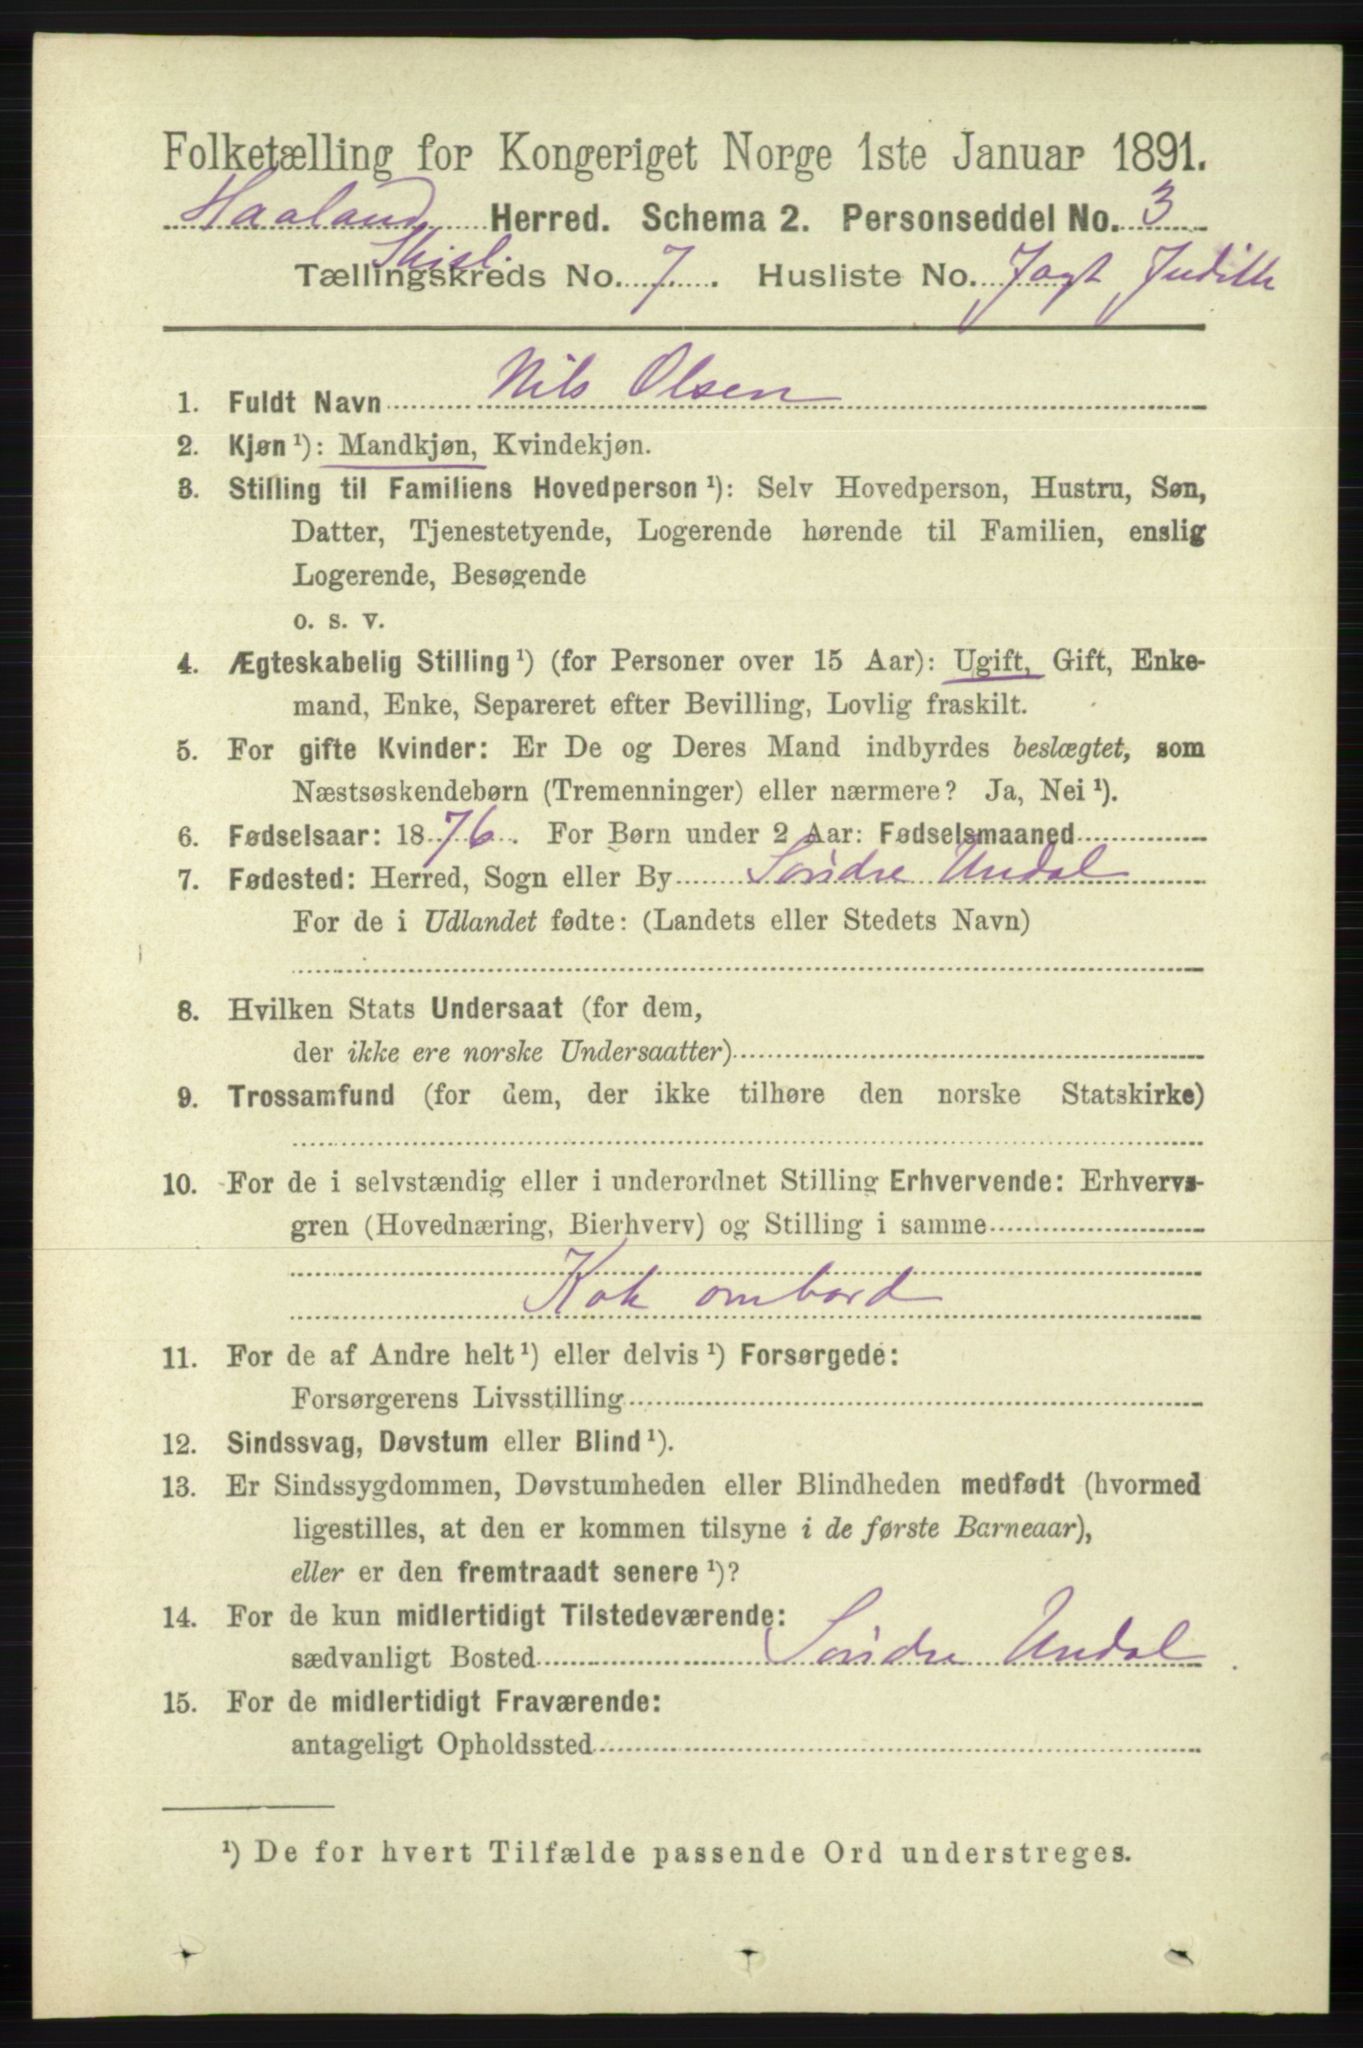 Folketælling for Kongeriget Norge 1ste Januar 1891.
Haaland Herred. Schema 2. Personseddel No. 3
Tællingskreds No. 7. Husliste No. Jagt Judith
1. Fuldt Navn Nils Olsen
2. Kjøn ¹): Mandkjøn, Kvindekjøn.
3. Stilling til Familiens Hovedperson ¹): Selv Hovedperson, Hustru, Søn,
Datter, Tjenestetyende, Logerende hørende til Familien, enslig
Logerende, Besøgende
o. s. v.
4. Ægteskabelig Stilling ¹) (for Personer over 15 Aar): Ugift, Gift, Enke-
mand, Enke, Separeret efter Bevilling, Lovlig fraskilt.
5. For gifte Kvinder: Er De og Deres Mand indbyrdes beslægtet, som
Næstsøskendebørn (Tremenninger) eller nærmere? Ja, Nei ¹).
6. Fødselsaar: 1876. For Børn under 2 Aar: Fødselsmaaned
7. Fødested: Herred, Sogn eller By Söndre Undal
For de i Udlandet fødte: (Landets eller Stedets Navn)
8. Hvilken Stats Undersaat (for dem,
der ikke ere norske Undersaatter)
9. Trossamfund (for dem, der ikke tilhøre den norske Statskirke)
10. For de i selvstændig eller i underordnet Stilling Erhvervende: Erhvervs-
gren (Hovednæring, Bierhverv) og Stilling i samme
Kok ombord
11. For de af Andre helt ¹) eller delvis ¹) Forsørgede:
Forsørgerens Livsstilling
12. Sindssvag, Døvstum eller Blind ¹).
13. Er Sindssygdommen, Døvstumheden eller Blindheden medfødt (hvormed
ligestilles, at den er kommen tilsyne i de første Barneaar),
eller er den fremtraadt senere ¹)?
14. For de kun midlertidigt Tilstedeværende:
sædvanligt Bosted Söndre Undal
15. For de midlertidigt Fraværende:
antageligt Opholdssted
¹) De for hvert Tilfælde passende Ord understreges.